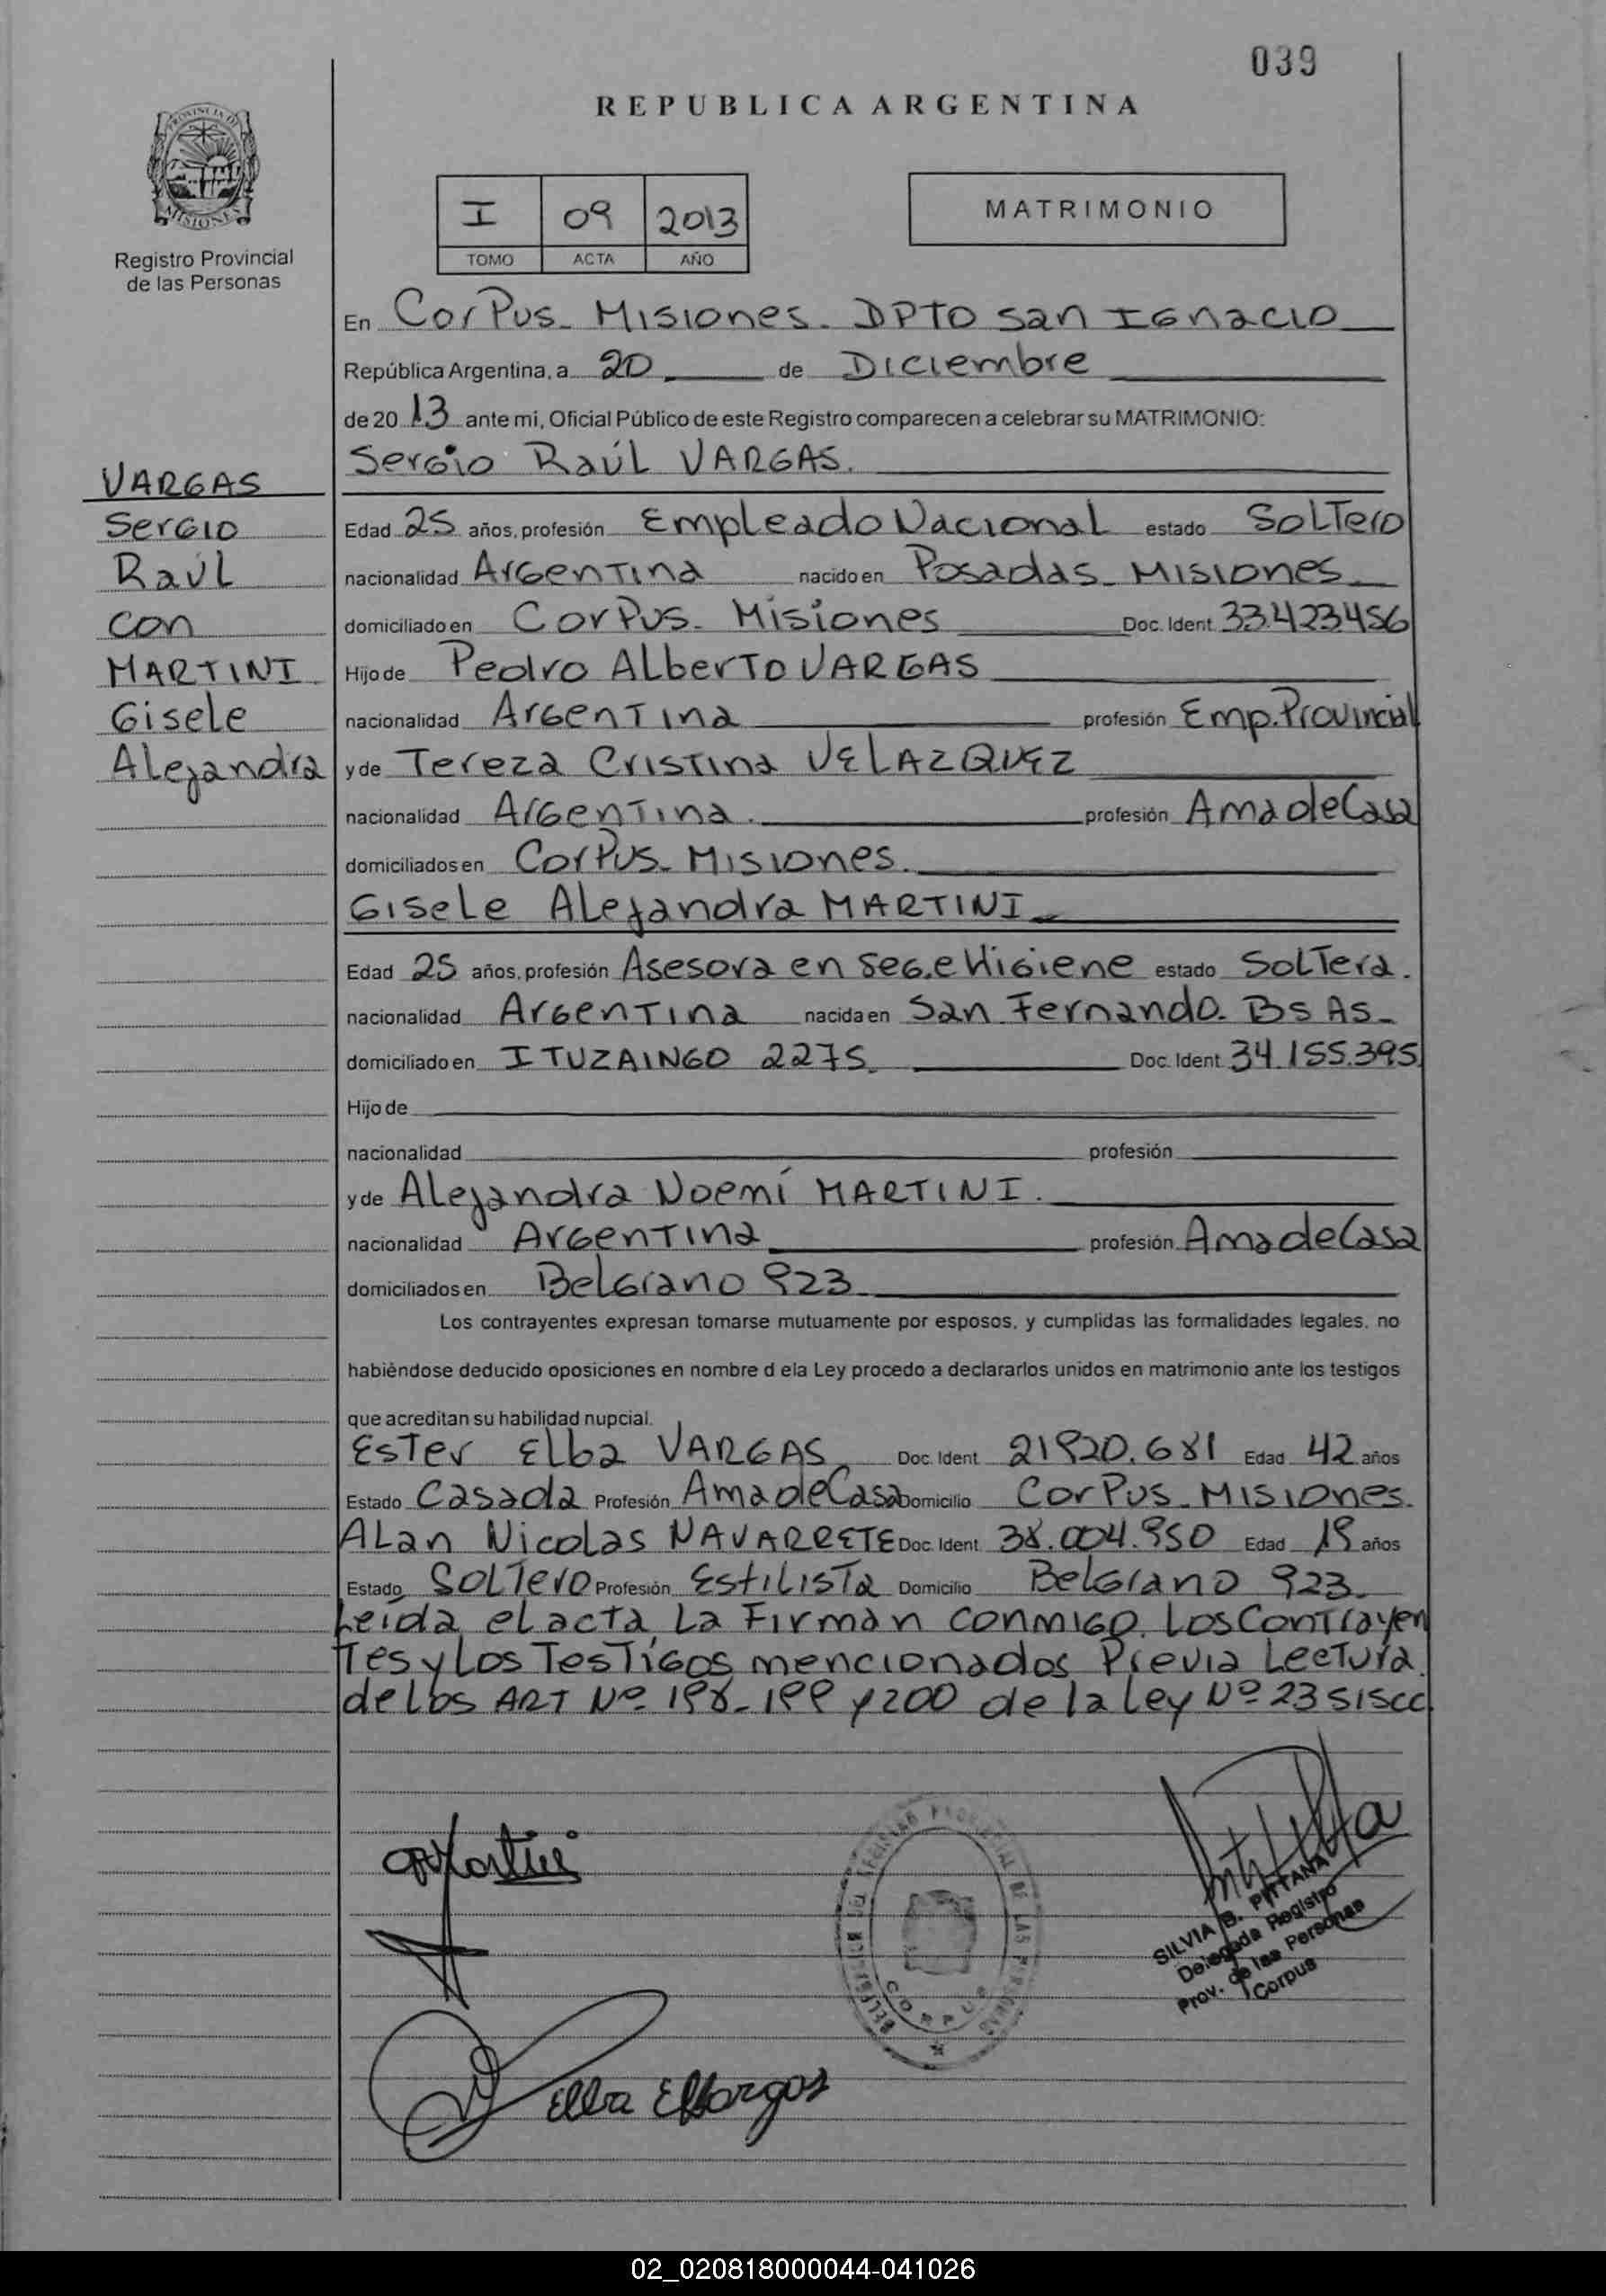 039
REPUBLICA ARGENTINA
PROVINCIA DE
MISIONES
Registro Provincial
de las Personas
I 09 2013
TOMO ACTA AÑO
MATRIMONIO
En Corpus_ Misiones_ DPTO San Ignacio
República Argentina, a 20 de Diciembre
de 2013 ante mi, Oficial Público de este Registro comparecen a celebrar su MATRIMONIO:
Sergio Raúl VARGAS.
VARGAS
Sergio
Raúl
con
MARTINI
Gisele
Alejandra
Edad 25 años, profesión Empleado Nacional estado Soltero
nacionalidad Argentina nacido en Posadas_ Misiones
domiciliado en Corpus_ Misiones Doc. Ident. 33.423.456
Hijo de Pedro Alberto VARGAS
nacionalidad Argentina profesión Emp. Provincial
y de Tereza Cristina VELAZQUEZ
nacionalidad Argentina. profesión Ama de Casa
domiciliados en Corpus_ Misiones.
Gisele Alejandra MARTINI
Edad 25 años, profesión Asesora en Seg. e Higiene estado Soltera.
nacionalidad Argentina nacida en San Fernando. Bs As_
domiciliado en ITUZAINGO 2275. Doc. Ident. 34.155.395
Hijo de
nacionalidad profesión
y de Alejandra Noemí MARTINI.
nacionalidad Argentina profesión Ama de Casa
domiciliados en Belgrano 923
Los contrayentes expresan tomarse mutuamente por esposos, y cumplidas las formalidades legales, no
habiéndose deducido oposiciones en nombre d ela Ley procedo a declararlos unidos en matrimonio ante los testigos
que acreditan su habilidad nupcial.
Ester Elba VARGAS Doc. Ident. 21920.681 Edad 42 años
Estado Casada Profesión Ama de Casa Domicilio Corpus_ Misiones.
Alan Nicolas NAVARRETE Doc. Ident. 38.004.950 Edad 19 años
Estado Soltero Profesión Estilista Domicilio Belgrano 923
Leída el acta, la Firman conmigo, los Contrayen
tes y los Testigos mencionados Previa Lectura
de los ART Nº 198_199 y 200 de la Ley Nº 23515cc.
Martini
CORPUS
SILVIA B. PITTANA
Delegada Registro
Prov. de las Personas
Corpus
Elba EVargas
02_020818000044-041026